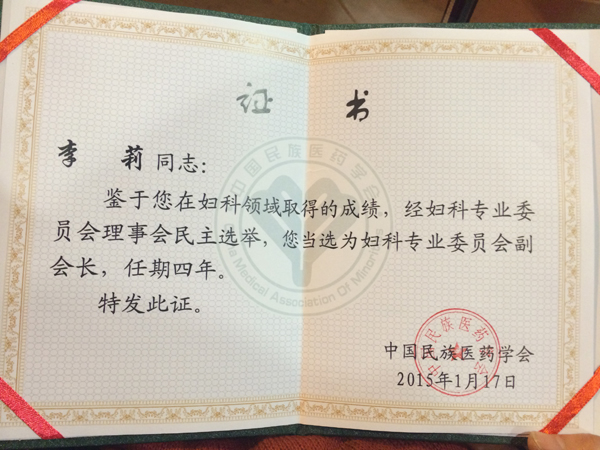 证 书
李 莉 同志：
鉴于您在妇科领域取得的成绩，经妇科专业委
员会理事会民主选举，您当选为妇科专业委员会副
会长，任期四年。
特发此证。
中国民族医药学会
2015年1月17日
中国民族医药学会
Medical Association Of Minorities
中国民族医药学会